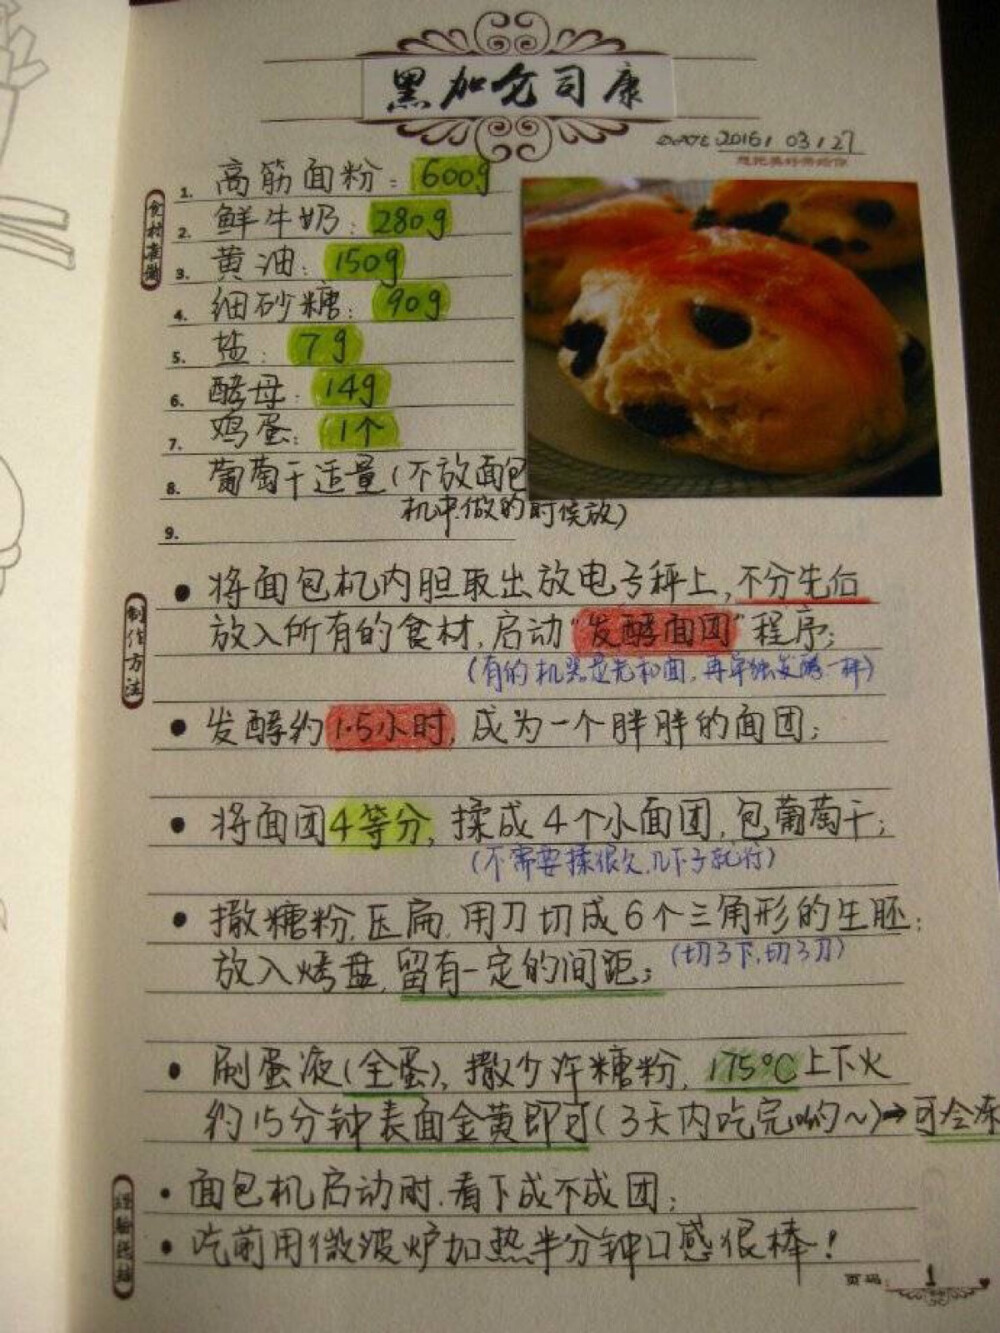 黑加仑司康
DATE 2016 / 03 / 27
想把美好带给你
食材准备
1. 高筋面粉：600g
2. 鲜牛奶：280g
3. 黄油：150g
4. 细砂糖：90g
5. 盐：7g
6. 酵母：14g
7. 鸡蛋：1个
8. 葡萄干适量（不放面包
机中.做的时候放）
9.
制作方法
• 将面包机内胆取出放电子秤上，不分先后
放入所有的食材，启动“发酵面团”程序；
（有的机器是先和面，再单独发酵一样）
• 发酵约1.5小时，成为一个胖胖的面团；
• 将面团4等分，揉成4个小面团，包葡萄干；
（不需要揉很久，几下子就行）
• 撒糖粉，压扁，用刀切成6个三角形的生胚；
（切3下，切3刀）
放入烤盘，留有一定的间距；
• 刷蛋液（全蛋），撒少许糖粉，175℃上下火
约15分钟表面金黄即可（3天内吃完哟~）→可冷冻
• 面包机启动时，看下成不成团；
• 吃前用微波炉加热半分钟口感很棒！
页码： 1